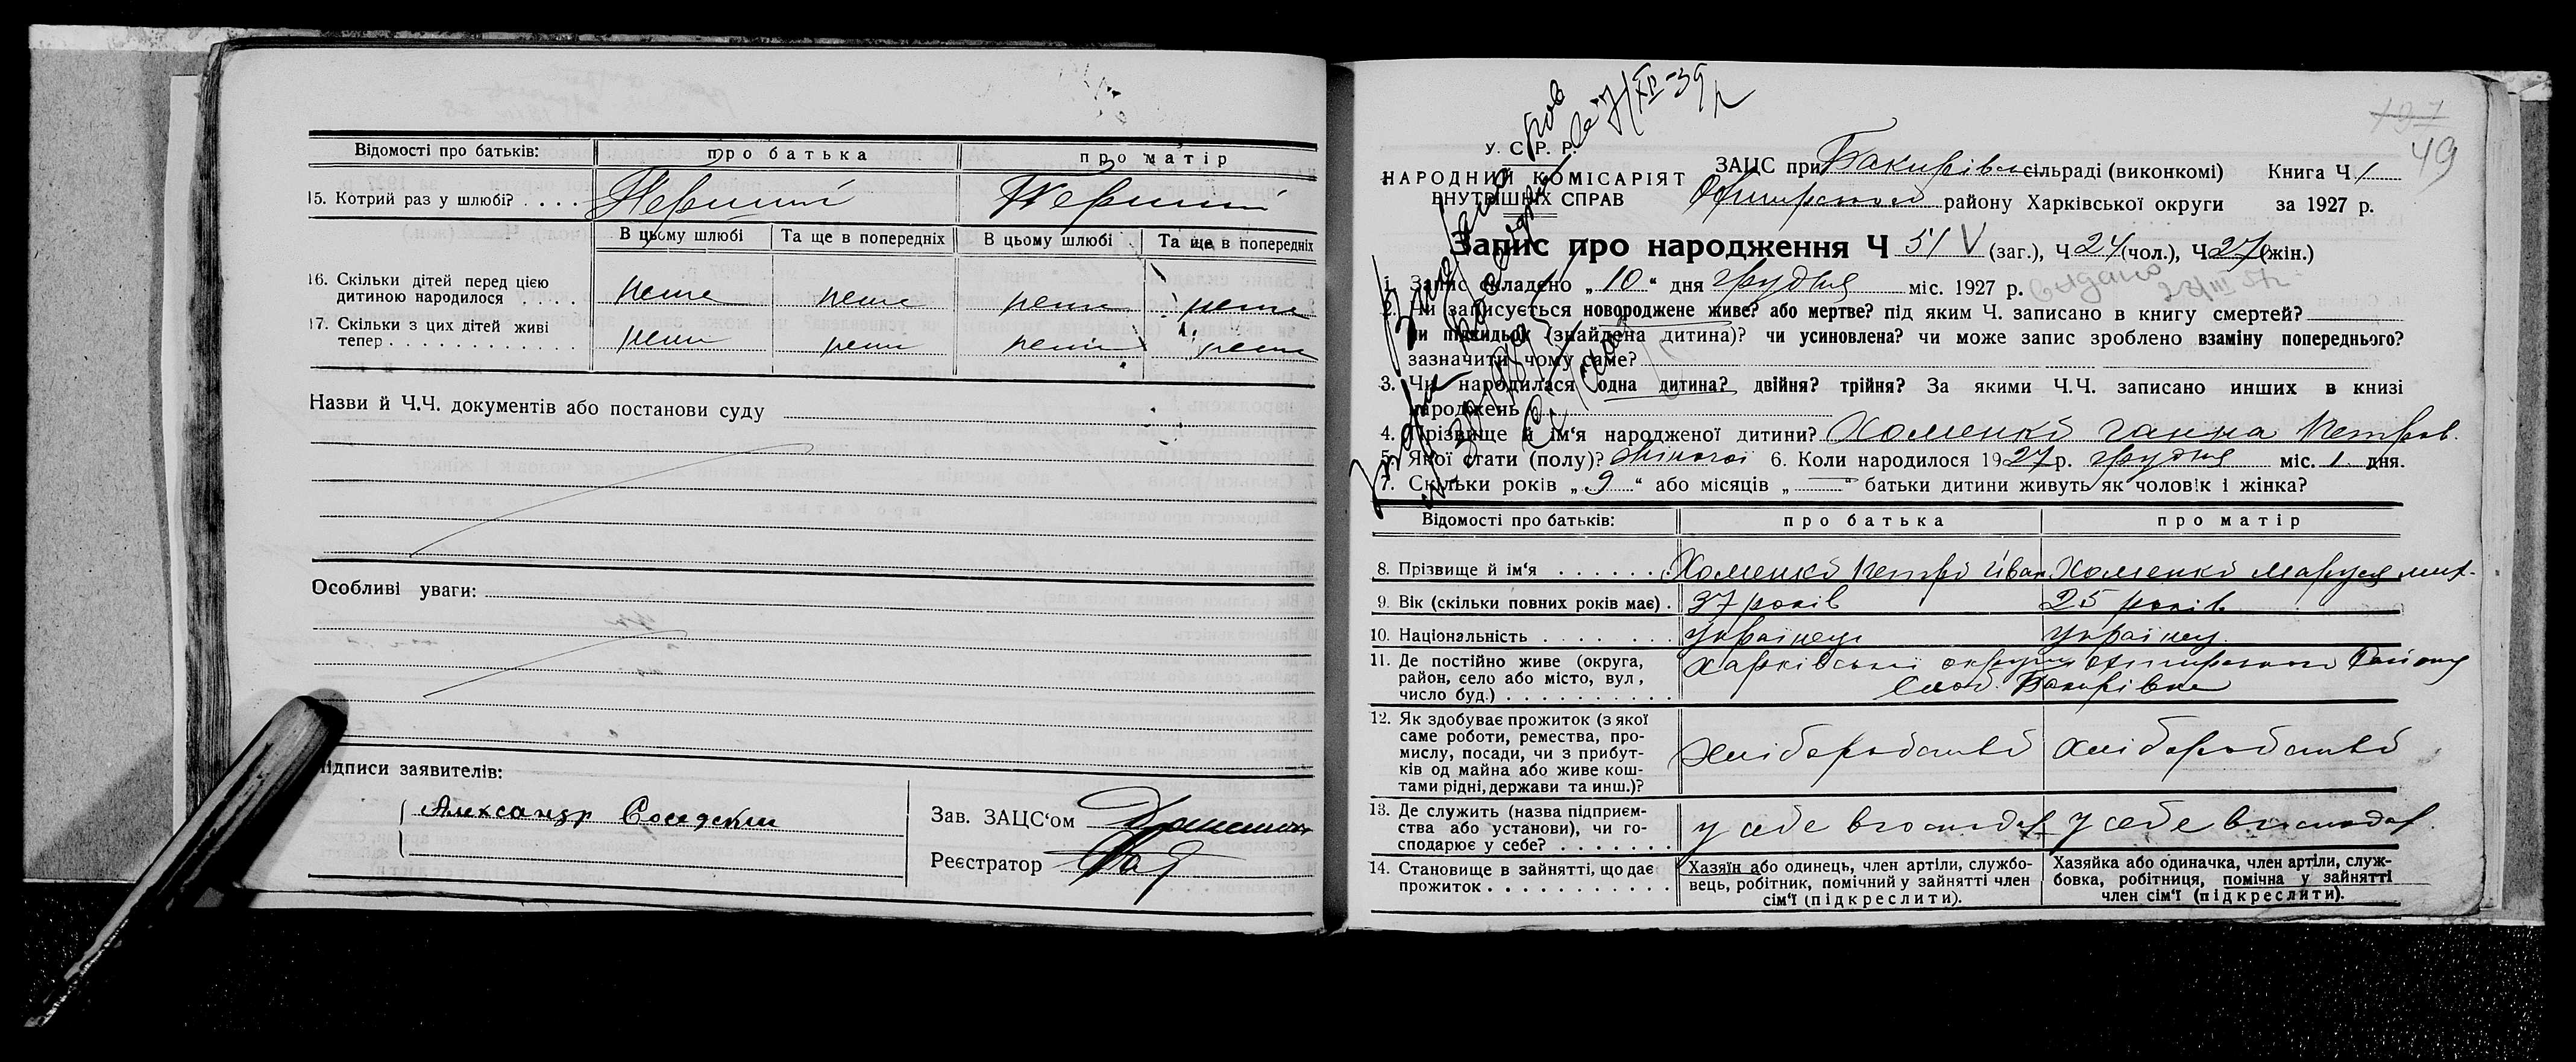 Відомості про батьків: про батька про матір
15. Котрий раз у шлюбі? . . . . Перший Перший
В цьому шлюбі Та ще в попередніх В цьому шлюбі Та ще в попередніх
16. Скільки дітей перед цією
дитиною народилося . . . . неше неше неше неше
17. Скільки з цих дітей живі
тепер . . . . . . . . . . . . . неше неше неше неше
Назви й Ч.Ч. документів або постанови суду
Особливі уваги:
Підписи заявителів:
Александр
Зав. ЗАЦС‘ом
Реєстратор
197
49
У. С. Р. Р.
НАРОДНИЙ КОМІСАРІЯТ
ВНУТРІШНІХ СПРАВ
7/XII-39р
ЗАЦС при Бакирівка сільраді (виконкомі) Книга Ч 1
району Харківської округи за 1927 р.
Запис про народження Ч 51 V (заг.), Ч 24 (чол.), Ч 27 (жін.)
1. Запис складено „ 10 “ дня грудня міс. 1927 р.
Видано
2. Чи записується новороджене живе? або мертве? під яким Ч. записано в книгу смертей?
чи підкидьок (знайдена дитина)? чи усиновлена? чи може запис зроблено взаміну попереднього?
зазначити чому саме?
3. Чи народилася одна дитина? двійня? трійня? За якими Ч.Ч. записано инших в книзі
народжень
4. Прізвище й ім‘я народженої дитини? Хоменко Ганна Петров.
5. Якої стати (полу)? жіночої 6. Коли народилося 1927 р. грудня міс. 1 дня.
7. Скільки років „ 9 “ або місяців „ — “ батьки дитини живуть як чоловік і жінка?
Відомості про батьків: про батька про матір
8. Прізвище й ім‘я . . . . . . Хоменко Петро Іван Хоменко Маруся мих.
9. Вік (скільки повних років має) . 37 років 25 років
10. Національність . . . . . . українець українец.
11. Де постійно живе (округа,
район, село або місто, вул,
число буд.) . . . . . . . . . . Харківської округи Охтирського Району
Слоб. Бакирівка
12. Як здобуває прожиток (з якої
саме роботи, ремества, про-
мислу, посади, чи з прибут-
ків од майна або живе кош-
тами рідні, держави та инш.)? хліборобство хліборобство
13. Де служить (назва підприєм-
ства або установи), чи го-
сподарює у себе? . . . . . . . у себе в господар у себе в господар
14. Становище в зайнятті, що дає
прожиток . . . . . . . . . . . .
Хазяїн або одинець, член артіли, службо-
вець, робітник, помічний у зайнятті член
сім‘ї (підкреслити).
Хазяйка або одиначка, член артіли, служ-
бовка, робітниця, помічна у зайнятті
член сім‘ї (підкреслити).